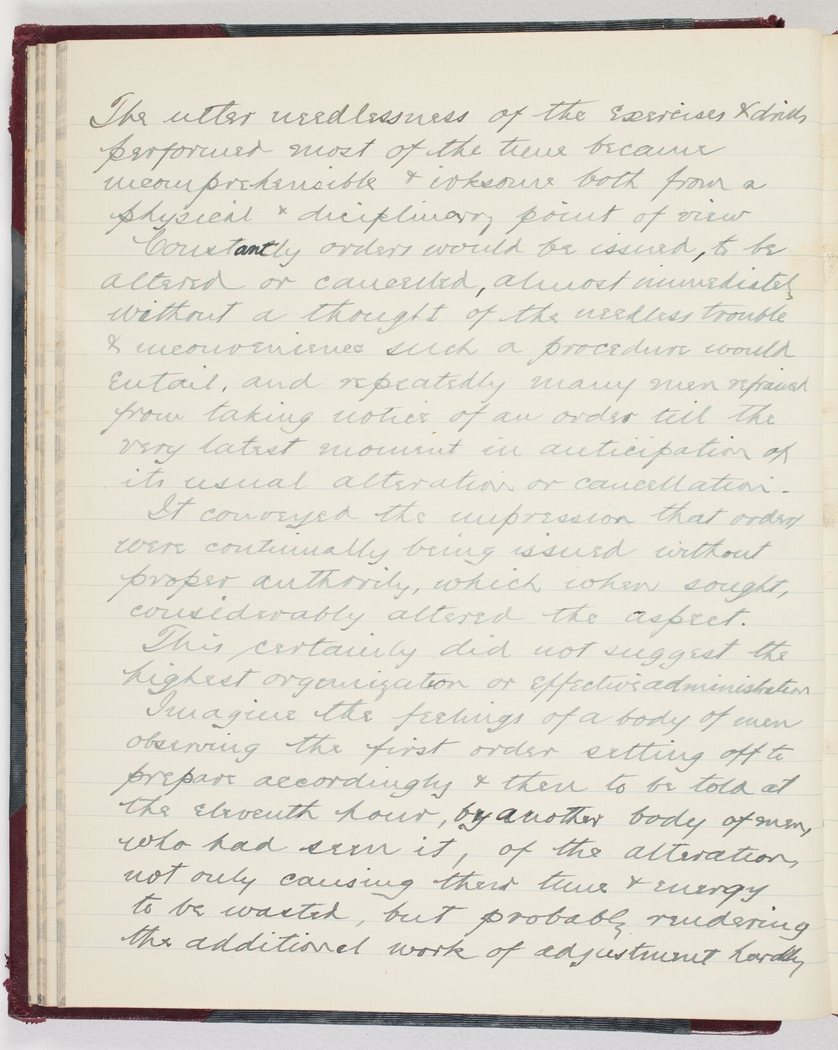 The utter needlessness of the exercises & drills
performed most of the time became
incomprehensible & irksome both from a
physical & diciplinary point of view
Constantly orders would be issued, to be
altered or cancelled, almost immediately
without a thought of the needless trouble
& inconvenience such a procedure would
entail, and repeatedly many men refrained
from taking notice of an order till the
very latest moment in anticipation of
its usual alteration or cancellation.
It conveyed the impression that orders
were continually being issued without
proper authority, which when sought,
considerably altered the aspect.
This certainly did not suggest the
highest organization or effective administration
Imagine the feelings of a body of men
observing the first order setting off to
prepare accordingly & then to be told at
the eleventh hour, by another body of men,
who had seen it, of the alteration,
not only causing their time & energy
to be wasted, but probably rendering
the additional work of adjustment hardly